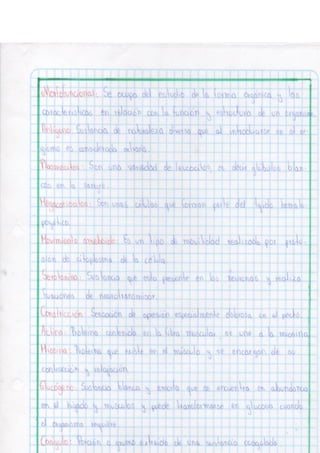 Morfofuncional: Se ocupa del estudio de la forma orgánica y las
características en relación con la función y estructura de un organismo.
Antígeno: Sustancia de naturaleza diversa que al introducirse en el or-
ganismo es considerada extraña.
Son una variedad de leucocitos, es decir glóbulos blan-
cos en la sangre.
Megacariocitos: Son unas células que forman parte del tejido hemato-
poyético.
Movimiento ameboide: Es un tipo de movilidad realizada por protu-
sión de citoplasma de la célula.
Serotonina: Sustancia que esta presente en las neuronas y realiza
funciones de neurotransmisor.
Constricción: Sensación de opresión especialmente dolorosa en el pecho.
Actina: Proteína contenida en la fibra muscular, se une a la miosina.
Miosina: Proteína que existe en el músculo y se encargan de su
contracción y relajación.
Glucógeno: Sustancia blanca y amorfa que se encuentra en abundancia
en el hígado y músculos y puede transformarse en glucosa cuando
el organismo requiere.
Coágulo: Porción o grumo extraido de una sustancia coagulada.